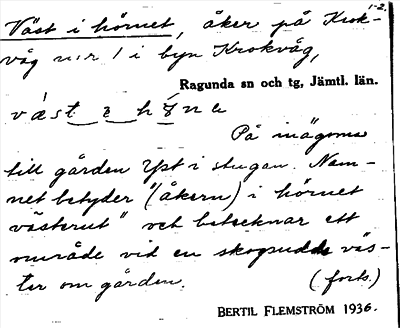 1-2.
Väst i hörnet, åker på Krok-
våg n:r 1 i byn Krokvåg,
Ragunda sn och tg, Jämtl. län.
På inägorna
till gården Yst i stugan. Nam-
net betyder "(åkern) i hörnet
västerut" och betecknar ett
område vid en skogsudde väs-
ter om gården. (forts.)
BERTIL FLEMSTRÖM 1936.